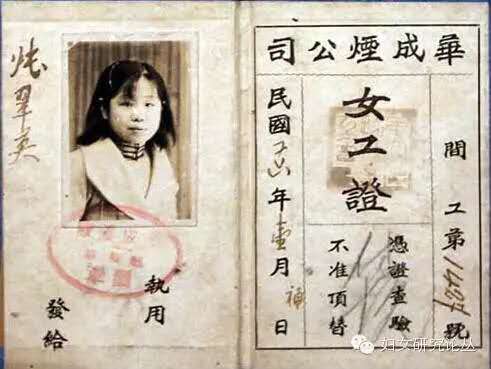 華成煙公司
間 工第 號
女工證
憑證查驗
不准頂替
民國 年壹月補日
執用
發給
張翠英
妇女研究论丛